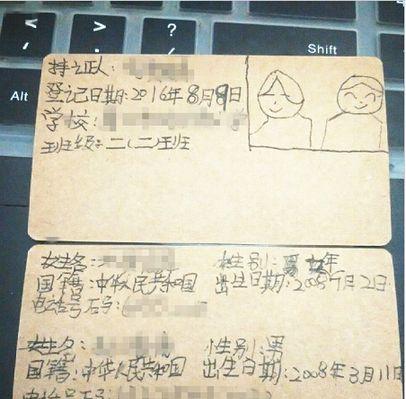 < ,
> .
?
/
Alt
Shift
持证队:
登记日期:2016年8月9日
学校:
班级:二(二)班
姓名: 性别:女
国籍:中华人民共和国 出生日期:2008年7月2日
电话号码:
姓名: 性别:男
国籍:中华人民共和国 出生日期:2008年3月11日
电话号码: